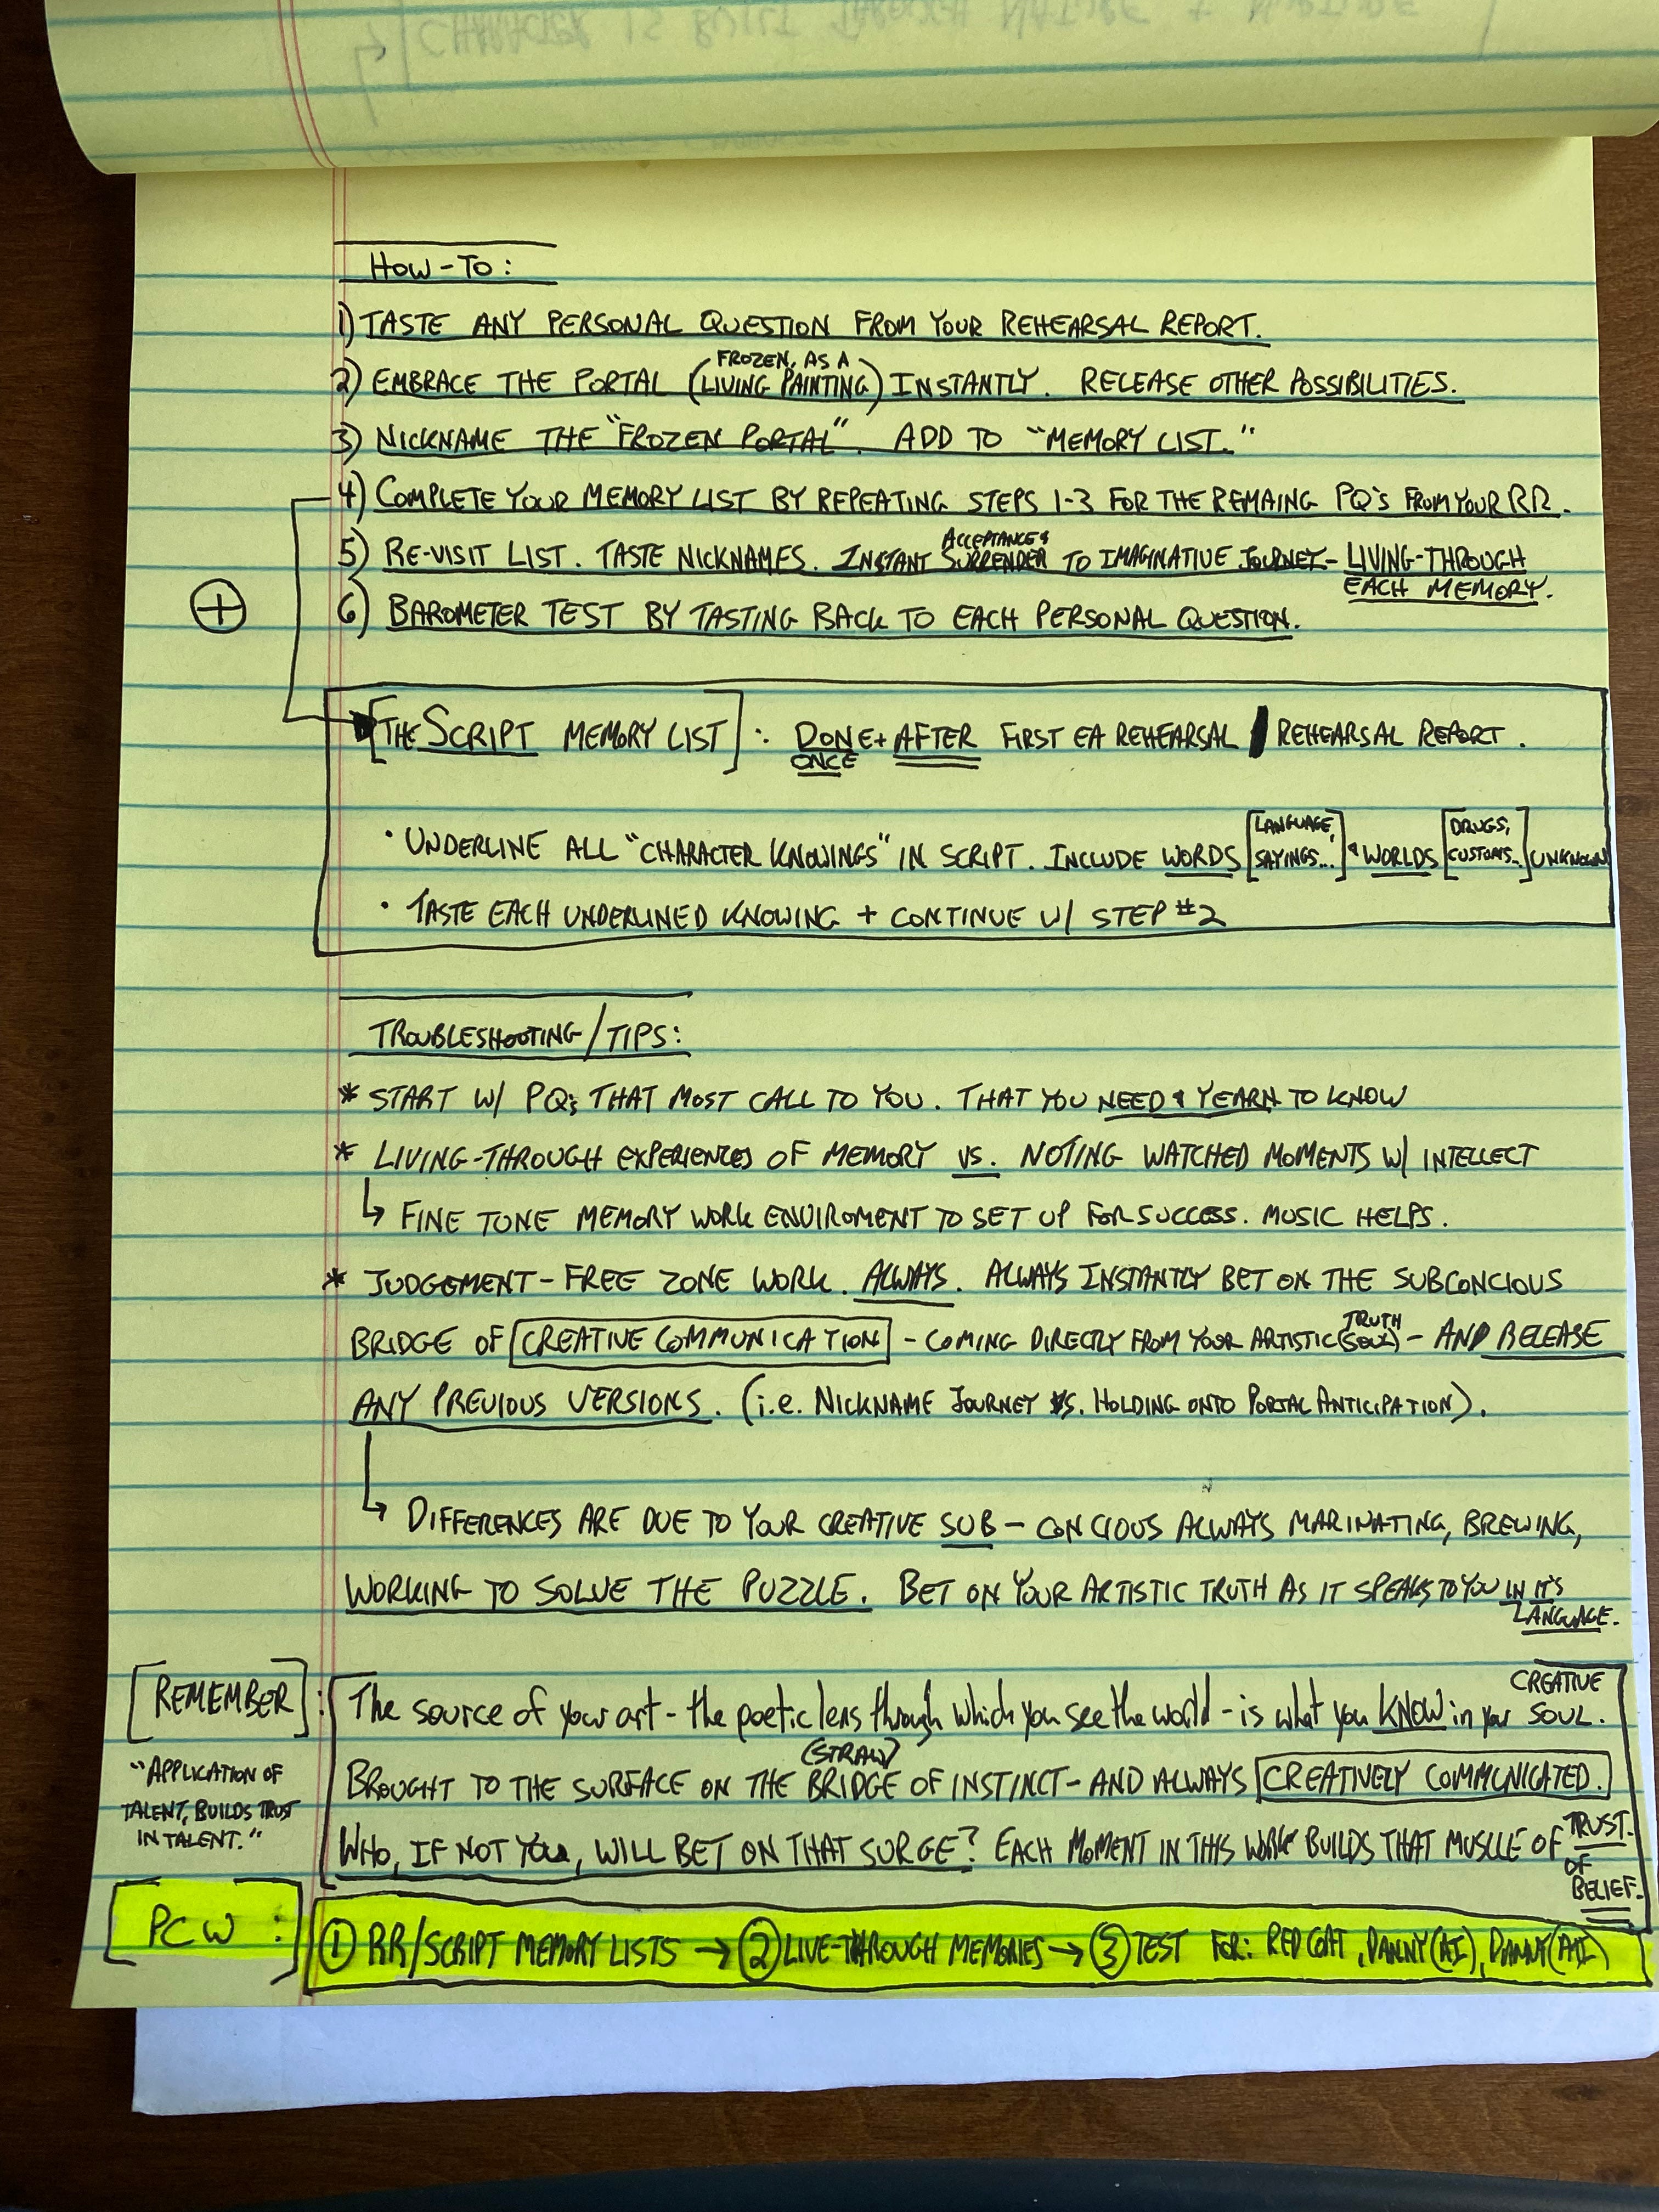 CHARACTER IS BUILT THROUGH NATURE + NURTURE
HOW-TO:
1) TASTE ANY PERSONAL QUESTION FROM YOUR REHEARSAL REPORT.
2) EMBRACE THE PORTAL (FROZEN, AS A LIVING PAINTING) INSTANTLY. RELEASE OTHER POSSIBILITIES.
3) NICKNAME THE "FROZEN PORTAL". ADD TO "MEMORY LIST."
4) COMPLETE YOUR MEMORY LIST BY REPEATING STEPS 1-3 FOR THE REMAING PQ'S FROM YOUR RR.
5) RE-VISIT LIST. TASTE NICKNAMES. INSTANT ACCEPTANCE & SURRENDER TO IMAGINATIVE JOURNEY - LIVING-THROUGH
EACH MEMORY.
6) BAROMETER TEST BY TASTING BACK TO EACH PERSONAL QUESTION.
+
[THE SCRIPT MEMORY LIST]: DONE ONCE + AFTER FIRST EA REHEARSAL / REHEARSAL REPORT.
• UNDERLINE ALL "CHARACTER KNOWINGS" IN SCRIPT. INCLUDE WORDS [LANGUAGE, SAYINGS...] & WORLDS [DRUGS, CUSTOMS...] UNKNOWN
• TASTE EACH UNDERLINED KNOWING + CONTINUE W/ STEP #2
TROUBLESHOOTING/TIPS:
* START W/ PQs THAT MOST CALL TO YOU. THAT YOU NEED & YEARN TO KNOW
* LIVING-THROUGH EXPERIENCES OF MEMORY VS. NOTING WATCHED MOMENTS W/ INTELLECT
↳ FINE TONE MEMORY WORK ENVIROMENT TO SET UP FOR SUCCESS. MUSIC HELPS.
* JUDGEMENT-FREE ZONE WORK. ALWAYS. ALWAYS INSTANTLY BET ON THE SUBCONCIOUS
BRIDGE OF CREATIVE COMMUNICATION - COMING DIRECTLY FROM YOUR ARTISTIC TRUTH (SOUL) - AND RELEASE
ANY PREVIOUS VERSIONS. (i.e. NICKNAME JOURNEY VS. HOLDING ONTO PORTAL ANTICIPATION).
↳ DIFFERENCES ARE DUE TO YOUR CREATIVE SUB-CONCIOUS ALWAYS MARINATING, BREWING,
WORKING TO SOLVE THE PUZZLE. BET ON YOUR ARTISTIC TRUTH AS IT SPEAKS TO YOU IN IT'S
LANGUAGE.
[REMEMBER]:
The source of your art - the poetic lens through which you see the world - is what you KNOW in your CREATIVE SOUL.
BROUGHT TO THE SURFACE ON THE (STRAW) BRIDGE OF INSTINCT - AND ALWAYS CREATIVELY COMMUNICATED.
WHO, IF NOT YOU, WILL BET ON THAT SURGE? EACH MOMENT IN THIS WORK BUILDS THAT MUSCLE OF TRUST.
OF
BELIEF.
"APPLICATION OF
TALENT, BUILDS TRUST
IN TALENT."
[PCW:]
① RR/SCRIPT MEMORY LISTS → ② LIVE-THROUGH MEMORIES → ③ TEST FOR: RED COAT, DANNY (AI), DANNY (AII)